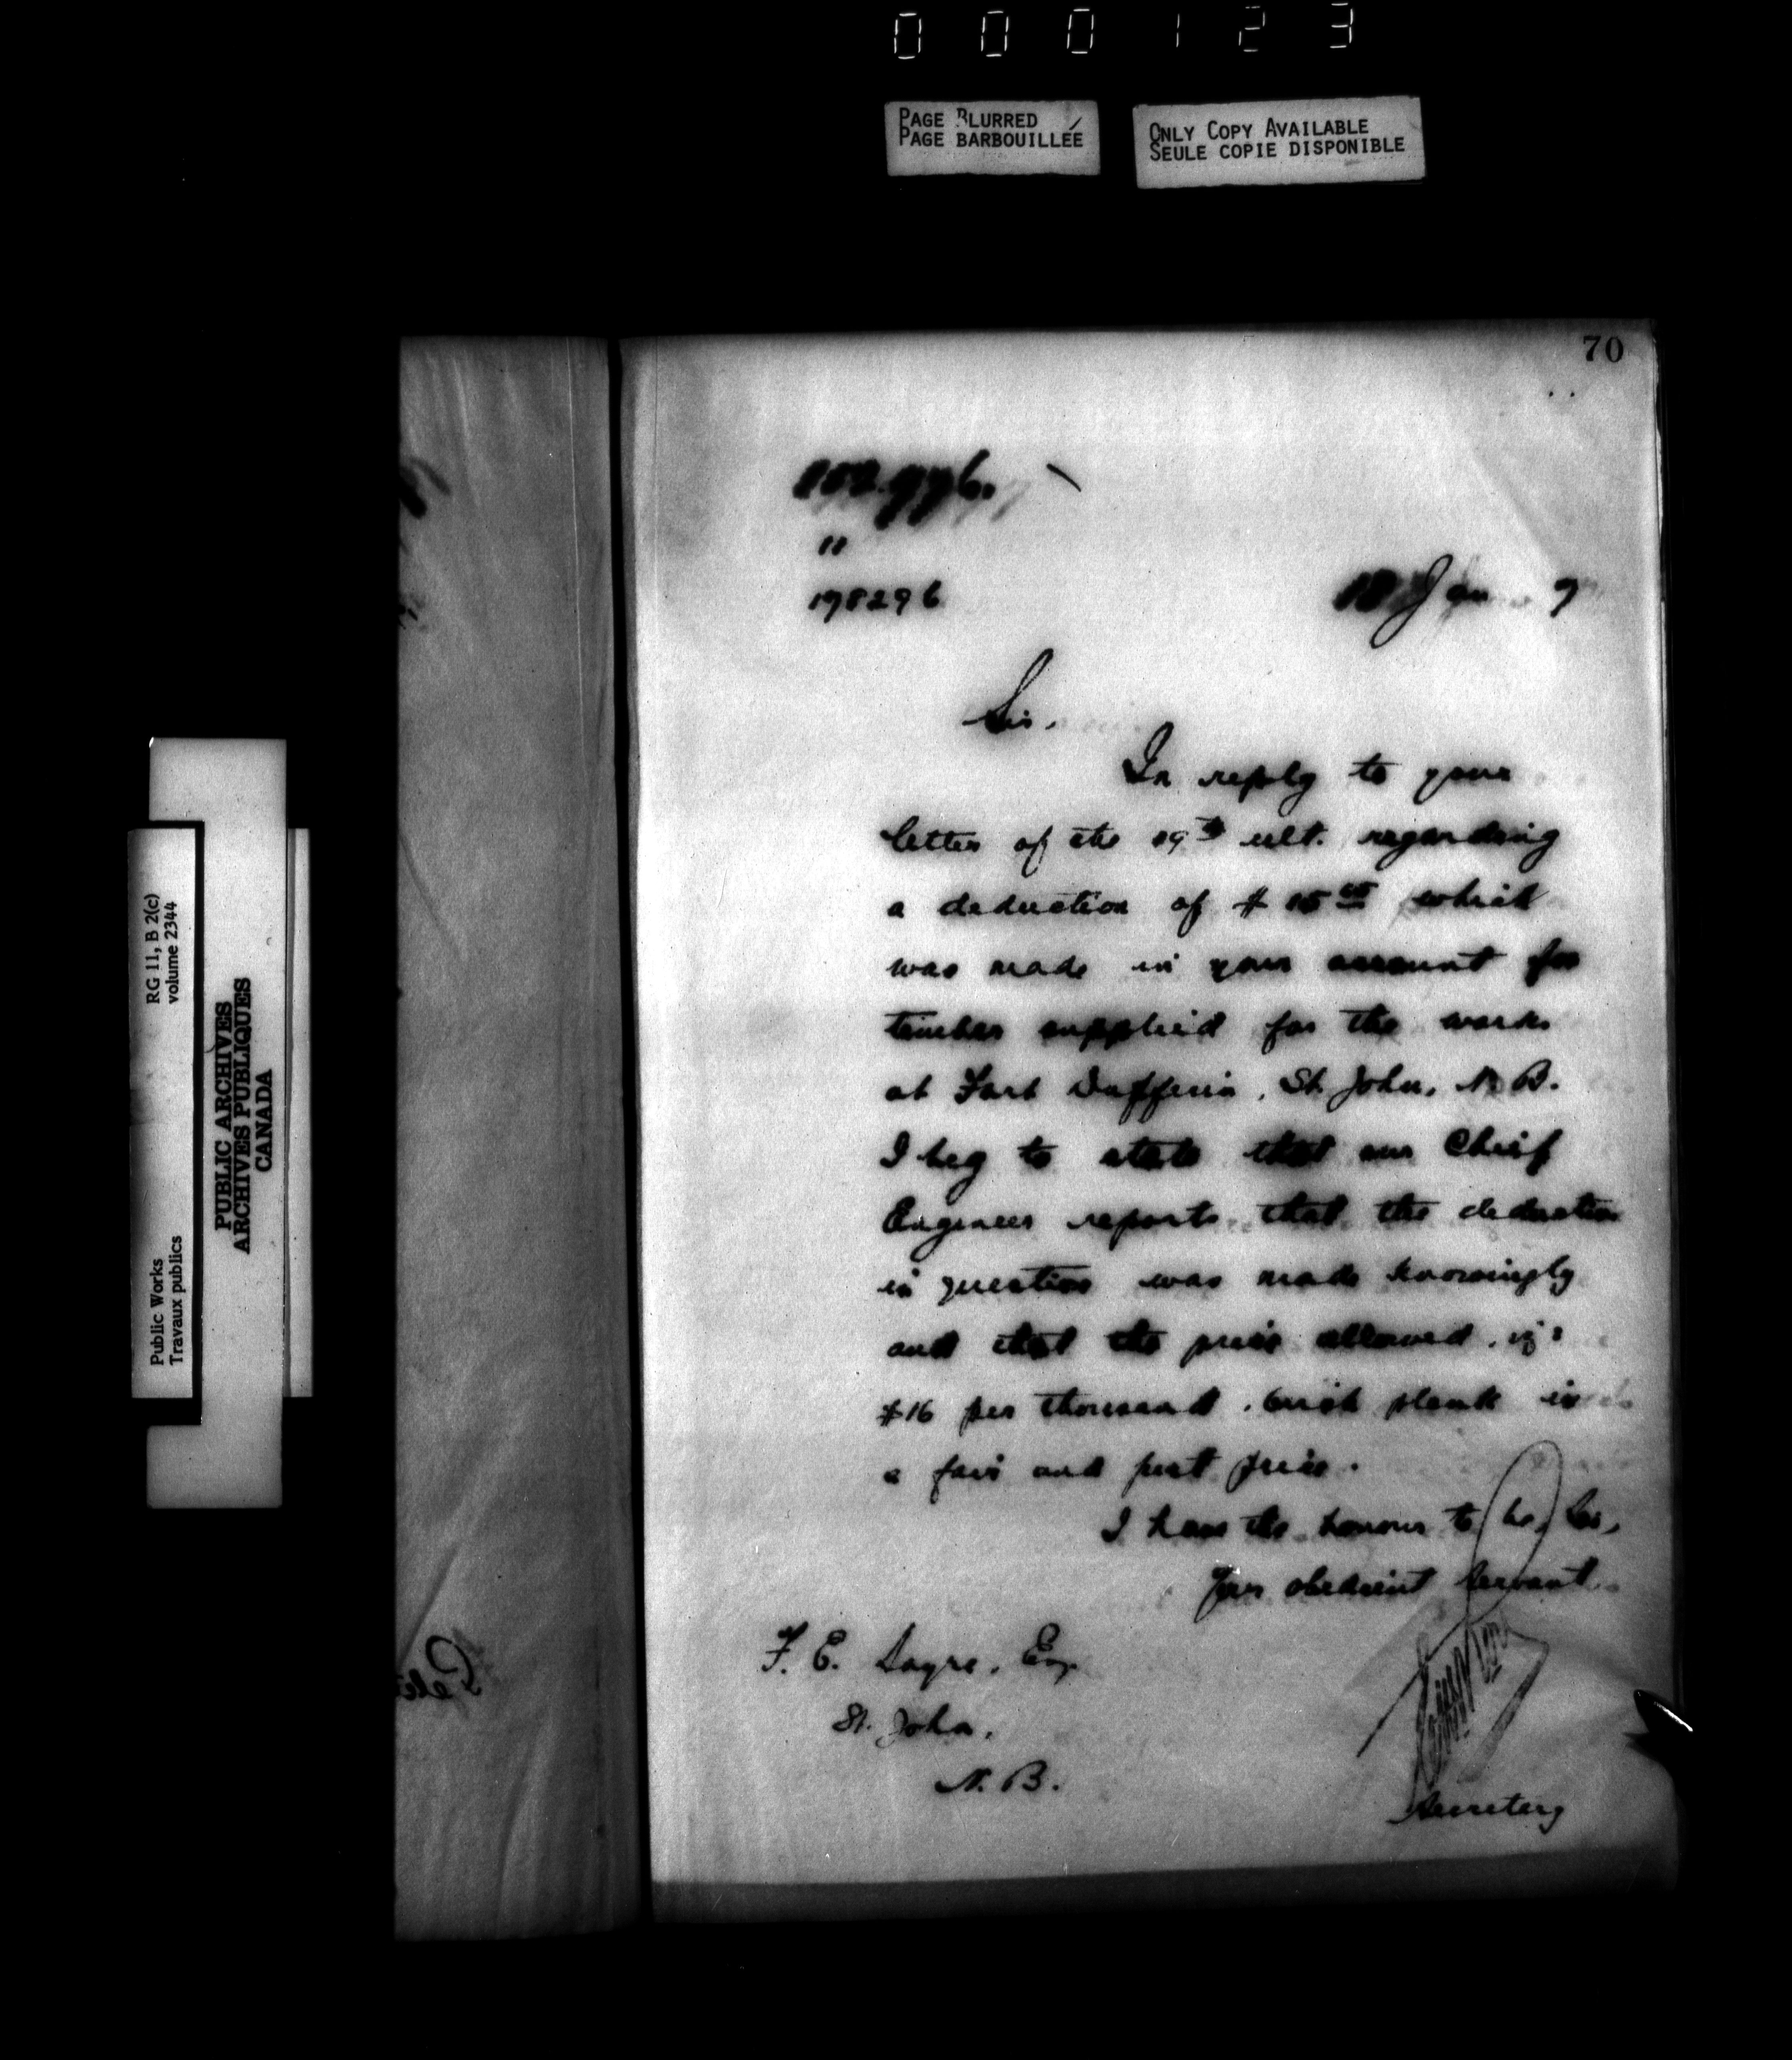 000123
PAGE BLURRED
PAGE BARBOUILLÉE
ONLY COPY AVAILABLE
SEULE COPIE DISPONIBLE
70
"
178296
Jan 7
Sir.
In reply to your
letter of the 19th ult. regarding
a deduction of $15 which
was made in your account for
timber supplied for the works
at Fort Dufferin, St. John, N.B.
I beg to state that our Chief
Engineer reports that the deduction
in question was made knowingly
and that the price allowed, viz:
$16 per thousand, birch plank is
a fair and just price.
I have the honour to be, Sir,
Your obedient Servant
F. E. Sayre, Esq.
St. John,
N. B.
Secretary
RG 11, B 2(c)
volume 2344
PUBLIC ARCHIVES
ARCHIVES PUBLIQUES
CANADA
Public Works
Travaux publics